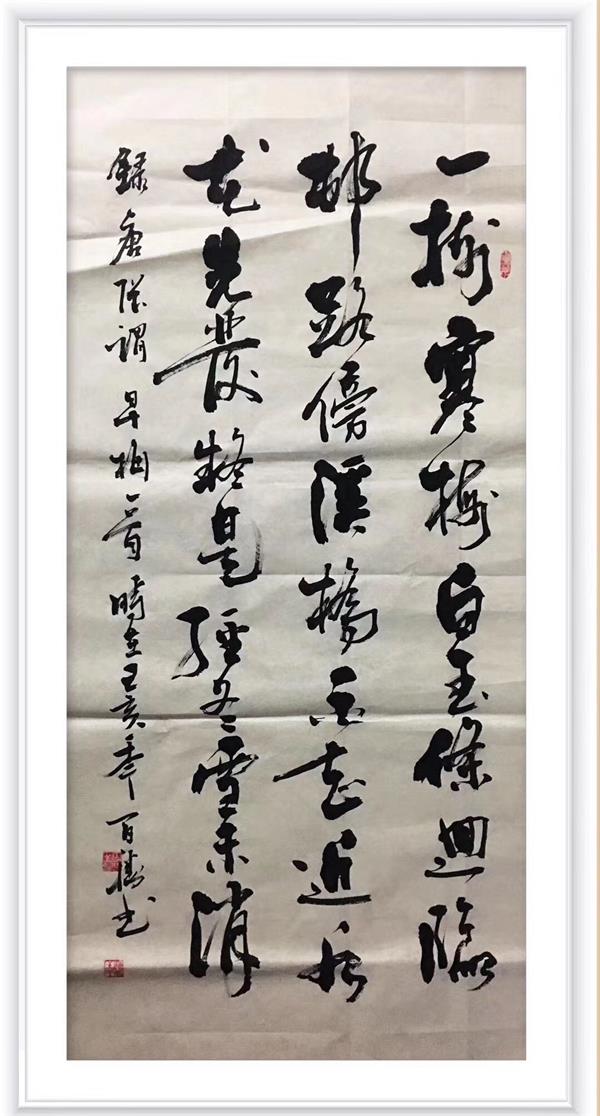 一樹寒梅白玉條迴臨
邨路傍溪橋不知近水
花先發疑是經冬雪未消
錄唐張謂早梅一首時在己亥年百樹书